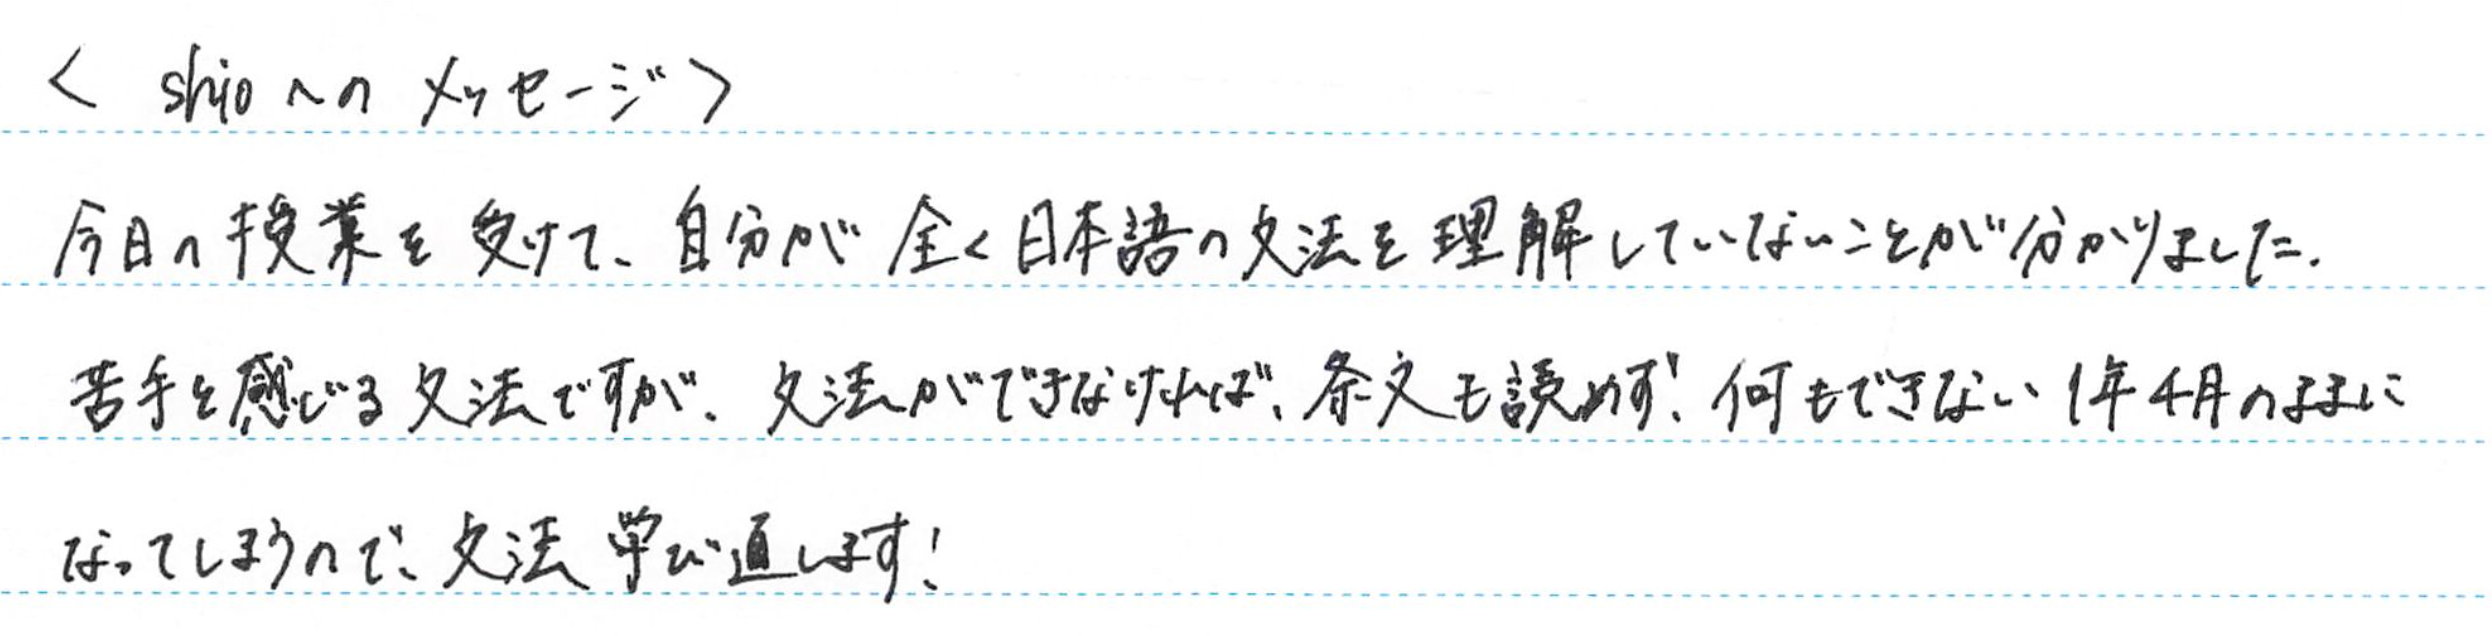 < shioへの メッセージ>
今日の授業を受けて、自分が全く日本語の文法を理解していないことが分かりました.
苦手を感じる文法ですが、文法ができなければ、条文も読めず! 何もできない1年4月のままに
なってしまうので、文法学び直します!